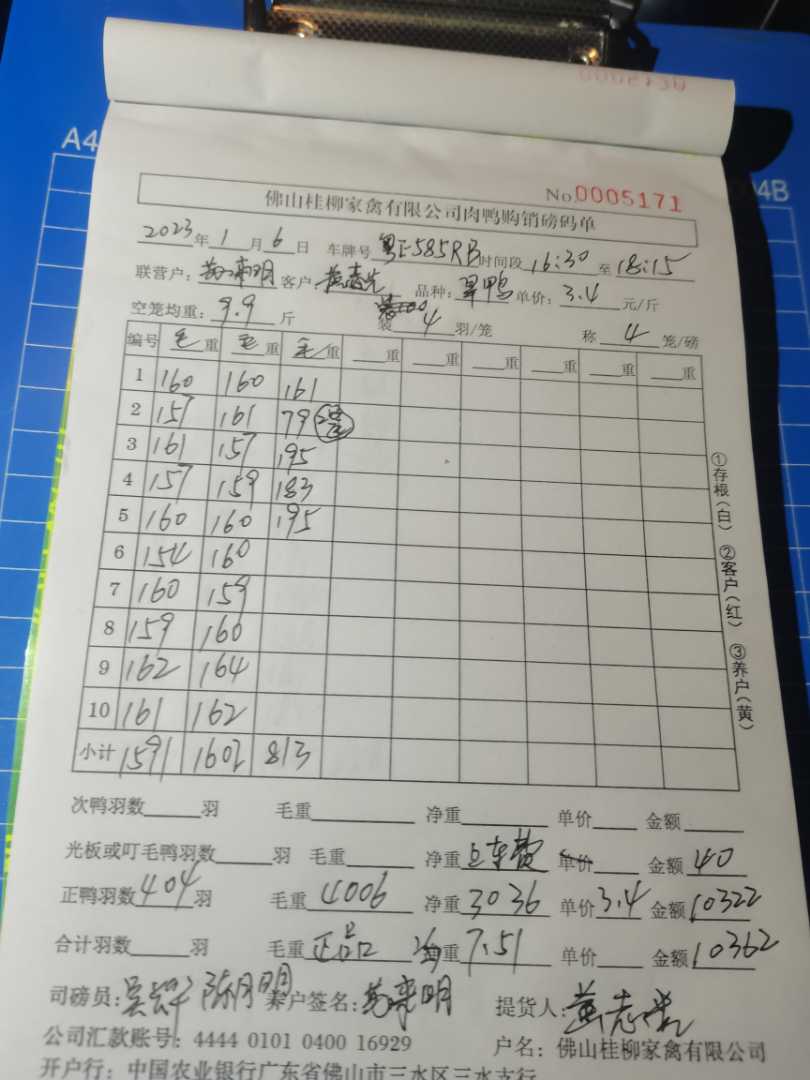 A4
A4B
0002730
佛山桂柳家禽有限公司肉鸭购销磅码单 No.0005171
2023年1月6日 车牌号 粤E-585RB 时间段 16:30 至 18:15
联营户: 明 客户: 黄志 品种: 鸭 单价: 3.4 元/斤
空笼均重: 9.9 斤 装 4 羽/笼 称 4 笼/磅
编号 毛重 毛重 毛重 重 重 重 重 重 重
1 160 160 161
2 157 161 79
3 161 157 195
4 157 159 183
5 160 160 195
6 154 160
7 160 159
8 159 160
9 162 164
10 161 162
小计 1591 1602 813
①存根(白) ②客户(红) ③养户(黄)
次鸭羽数 羽 毛重 净重 单价 金额
光板或叮毛鸭羽数 羽 毛重 净重 车费 单价 金额 40
正鸭羽数 404 羽 毛重 4006 净重 3036 单价 3.4 金额 10322
合计羽数 羽 毛重 正品 均重 7.51 单价 金额 10362
司磅员: 陈明 养户签名: 明 提货人: 黄志
公司汇款账号: 4444 0101 0400 16929 户名: 佛山桂柳家禽有限公司
开户行: 中国农业银行广东省佛山市三水区三水支行